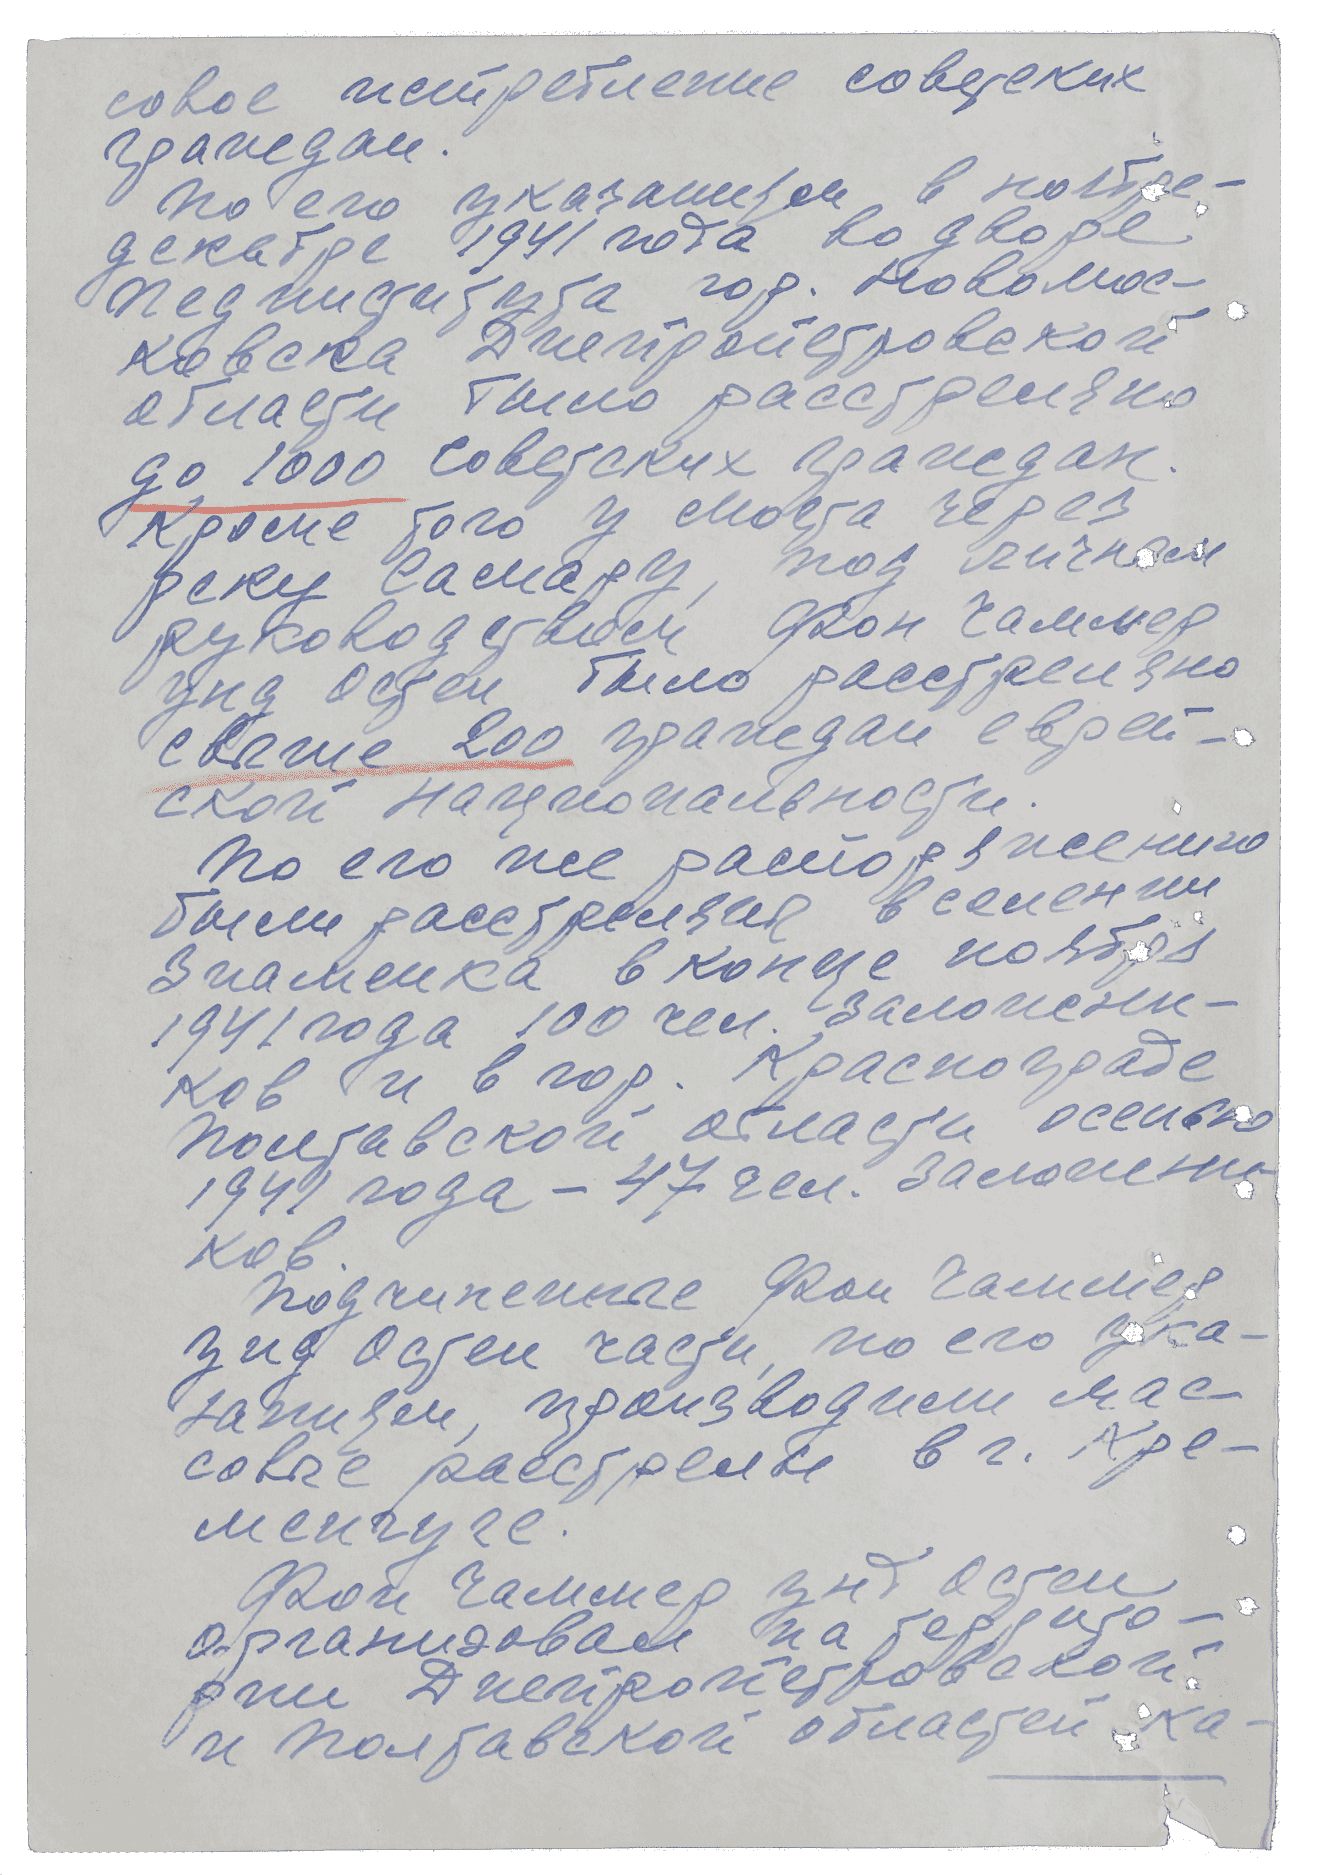 совое истребление советских
граждан.
По его указаниям в ноябре-
декабре 1941 года во дворе
Пединститута гор. Новомос-
ковска Днепропетровской
области было расстреляно
до 1000 советских граждан.
Кроме того у моста через
реку Самару, под личным
руководством Фон Чаммер
унд Остен было расстреляно
свыше 200 граждан еврей-
ской национальности.
По его же распоряжению
были расстреляны в селении
Знаменка в конце ноября
1941 года 100 чел. заложени-
ков и в гор. Краснограде
Полтавской области осенью
1941 года - 47 чел. заложени-
ков.
Подчиненные Фон Чаммер
унд Остен части, по его ука-
заниям, производили мас-
совые расстрелы в г. Кре-
менчуге.
Фон Чаммер унд Остен
организовал на террито-
рии Днепропетровской
и Полтавской областей ка-